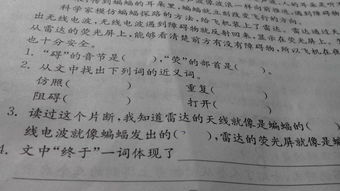 科学家模仿蝙蝠探路的方法，给飞机装上了雷达。雷达通过天
出无线电波，无线电波遇到障碍物就反射回来，显示在荧光屏上。
从雷达的荧光屏上，能够看清楚前方有没有障碍物，所以飞机在夜
也十分安全。
1. “碍”的音节是(　　)，“荧”的部首是(　　)。
2. 从文中找出下列词的近义词。
仿照(　　)　　重复(　　)
阻碍(　　)　　打开(　　)
3. 读过这个片断，我知道雷达的天线就像是蝙蝠的(
线电波就像蝙蝠发出的(　　)，雷达的荧光屏就像是蝙
4. 文中“终于”一词体现了